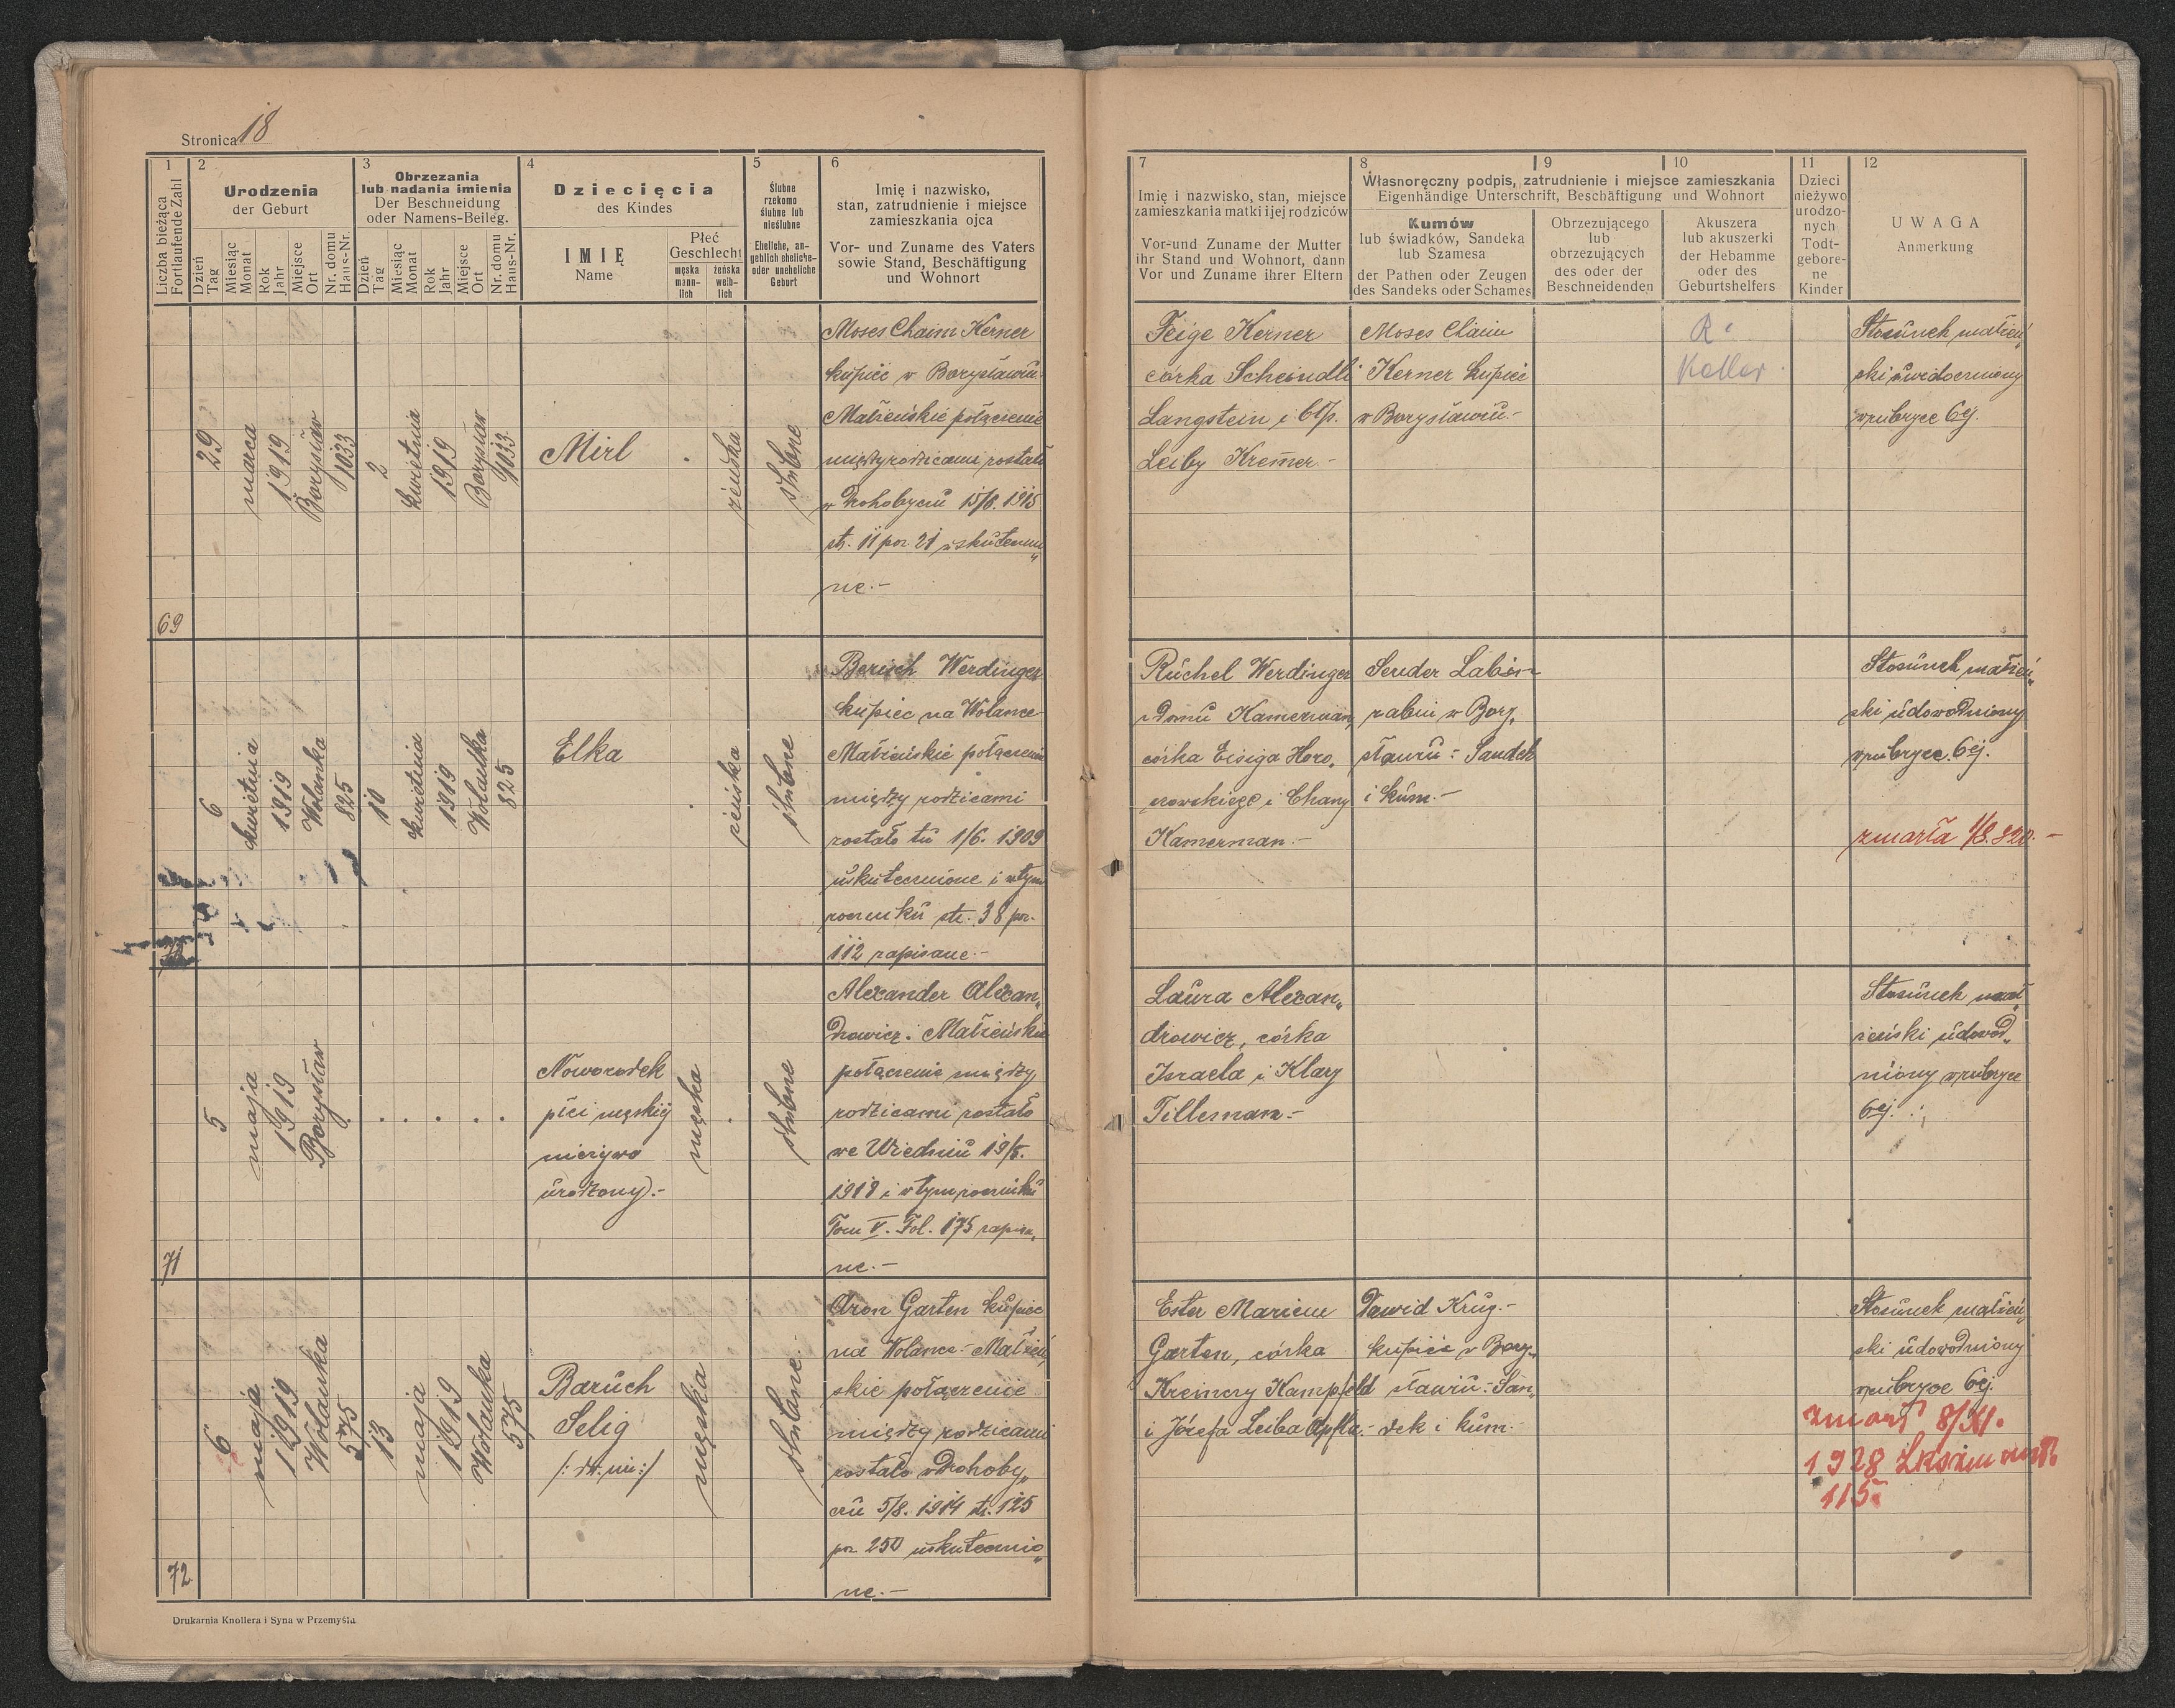 Stronica 18
1
2
3
4
5
6
Liczba bieżąca
Fortlaufende Zahl
Urodzenia
der Geburt
Obrzezania
lub nadania imienia
Der Beschneidung
oder Namens-Beileg.
Dziecięcia
des Kindes
Ślubne
rzekomo
ślubne lub
nieślubne
Eheliche, an-
geblich eheliche-
oder uneheliche
Geburt
Imię i nazwisko,
stan, zatrudnienie i miejsce
zamieszkania ojca
Vor- und Zuname des Vaters
sowie Stand, Beschäftigung
und Wohnort
Dzień
Tag
Miesiąc
Monat
Rok
Jahr
Miejsce
Ort
Nr. domu
Haus-Nr.
Dzień
Tag
Miesiąc
Monat
Rok
Jahr
Miejsce
Ort
Nr. domu
Haus-Nr.
IMIĘ
Name
Płeć
Geschlecht
męska
männ-
lich
żeńska
weib-
lich
69
29
marca
1919
Borysław
1033
2
kwietnia
1919
Borysław
1033
Mirl
żeńska
ślubne
Moses Chaim Kerner
kupiec w Borysławiu.
Małżeńskie połączenie
między rodzicami zostało
w Drohobyczu 15/6. 1915
str. 11 poz. 21 uskuteczni„
ne.-
6
kwietnia
1919
Wolanka
825
10
kwietnia
1919
Wolanka
825
Elka
żeńska
ślubne
Berisch Werdinger
kupiec na Wolance
Małżeńskie połączenie
między rodzicami
zostało tu 1/6. 1909
uskutecznione i w tym
roczniku str. 38 poz.
112 zapisane.-
71
5
maja
1919
Borysław
Noworodek
płci męskiej
nieżywo
urodzony.-
męska
ślubne
Alexander Alexan„
drowicz. Małżeńskie
połączenie między
rodzicami zostało
we Wiedniu 19/5.
1918 i w tym roczniku
Tom V. Fol. 175 zapisa„
ne.-
72
6
maja
1919
Wolanka
575
13
maja
1919
Wolanka
575
Baruch
Selig
/: dw. im :/
męska
ślubne
Aron Garten kupiec
na Wolance - Małżeń„
skie połączenie
między rodzicami
zostało w Drohoby„
czu 5/8. 1914 str. 125
poz. 250 uskutecznio„
ne.-
Drukarnia Knollera i Syna w Przemyślu
7
8
9
10
11
12
Imię i nazwisko, stan, miejsce
zamieszkania matki i jej rodziców
Vor-und Zuname der Mutter
ihr Stand und Wohnort, dann
Vor und Zuname ihrer Eltern
Własnoręczny podpis, zatrudnienie i miejsce zamieszkania
Eigenhändige Unterschrift, Beschäftigung und Wohnort
Kumów
lub świadków, Sandeka
lub Szamesa
der Pathen oder Zeugen
des Sandeks oder Schames
Obrzezującego
lub
obrzezujących
des oder der
Beschneidenden
Akuszera
lub akuszerki
der Hebamme
oder des
Geburtshelfers
Dzieci
nieżywo
urodzo-
nych
Todt-
gebore-
ne
Kinder
UWAGA
Anmerkung
Feige Kerner
córka Scheindli
Langstein i błp.
Leiby Kremer.-
Moses Chaim
Kerner kupiec
w Borysławiu.-
Keller
Stosunek małżeń„
ski uwidoczniony
w rubryce 6ej.
Ruchel Werdinger
z domu Kamerman,
córka Eisiga Horo„
zowskiego i Chany
Kamerman.-
Sender Labin
rabin w Bory„
sławiu: Sandek
i kum.-
Stosunek małżeń„
ski udowodniony
w rubryce 6ej.
zmarła 1/8. 920.-
Laura Alexan„
drowicz, córka
Israela i Klary
Tilleman.-
Stosunek mał„
żeński udowod„
niony w rubryce
6ej.
Ester Mariem
Garten, córka
Kreinczy Kampfeld
i Józefa Leiba
Dawid Krug.-
kupiec w Bory„
sławiu.- San„
dek i kum.-
Stosunek małżeń„
ski udowodniony
w rubryce 6ej.
zmarł 8/XI.
1928
115.